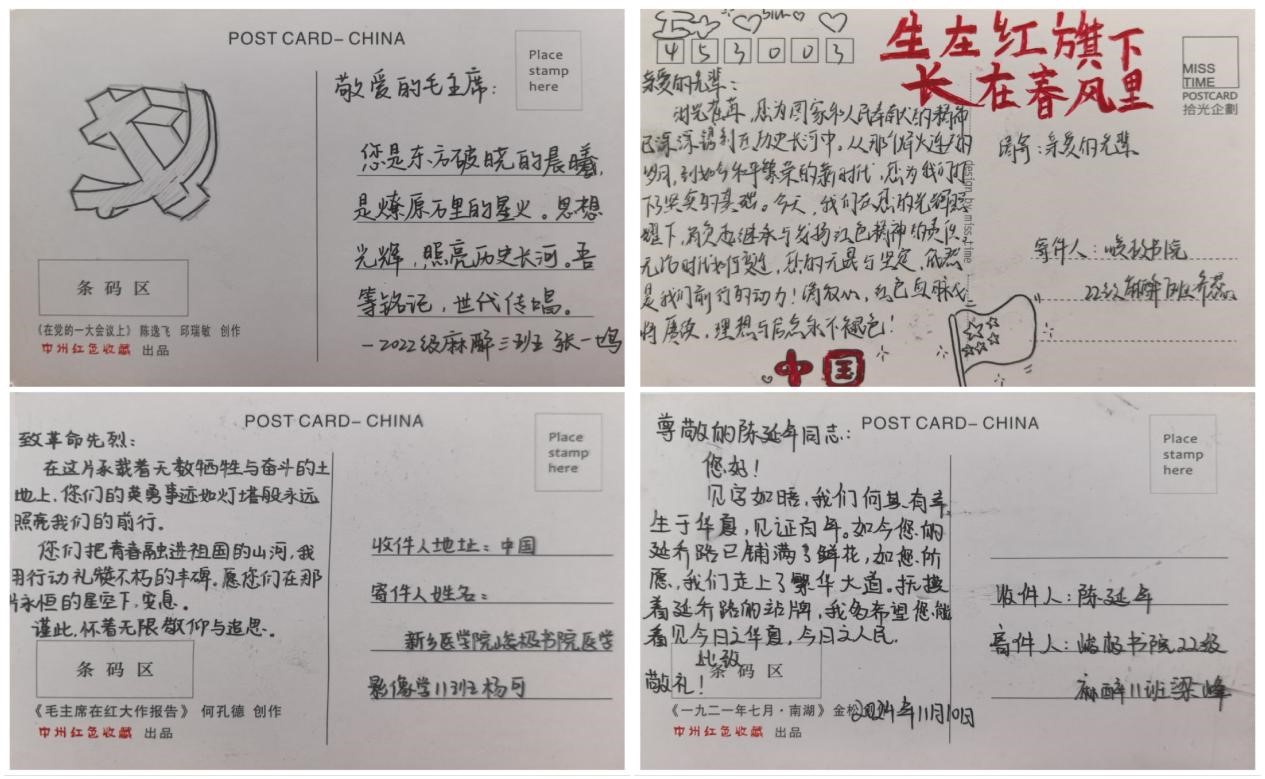 POST CARD– CHINA
Place
stamp
here
敬爱的毛主席：
您是东方破晓的晨曦，
是燎原石里的星火。思想
光辉，照亮历史长河。吾
等铭记，世代传唱。
—2022级麻醉三班 张一鸣
条码区
《在党的一大会议上》 陈逸飞 邱瑞敏 创作
中州红色收藏 出品
453003
生在红旗下
长在春风里
MISS
TIME
POSTCARD
拾光企劃
design by miss.time
亲爱的先辈：
时光荏苒，您为国家和人民奉献的精神
已深深镌刻在历史长河中。从那个烽火连天的
岁月，到如今和平繁荣的新时代，您为我们打
下了坚实的基础。今天，我们在您的光辉照
耀下，肩负着继承与发扬红色精神的责任。
无论时代如何变迁，您的无畏与坚定，依然
是我们前行的动力！
将赓续，理想与信念永不褪色！
寄：亲爱的先辈
寄件人：崚极书院
22级麻醉
中国
POST CARD– CHINA
Place
stamp
here
致革命先烈：
在这片承载着无数牺牲与奋斗的土
地上，您们的英勇事迹如灯塔般永远
照亮我们的前行。
您们把青春融进祖国的山河，我
用行动礼赞不朽的丰碑。愿您们在那
片永恒的星空下，安息。
谨此，怀着无限敬仰与追思。
收件人地址：中国
寄件人姓名：
新乡医学院崚极书院医学
影像学11班杨可
条码区
《毛主席在红大作报告》 何孔德 创作
中州红色收藏 出品
POST CARD– CHINA
Place
stamp
here
尊敬的陈延年同志：
您好！
见字如晤，我们何其有幸，
生于华夏，见证百年。如今您的
延乔路已铺满了鲜花，如您所
愿，我们走上了繁华大道。抚摸
着延乔路的站牌，我多希望您能
看见今日之华夏，今日之人民。
此致
敬礼！
2024年11月10日
收件人：陈延年
寄件人：崚极书院22级
麻醉11班梁峰
条码区
《一九二一年七月·南湖》 金松
中州红色收藏 出品